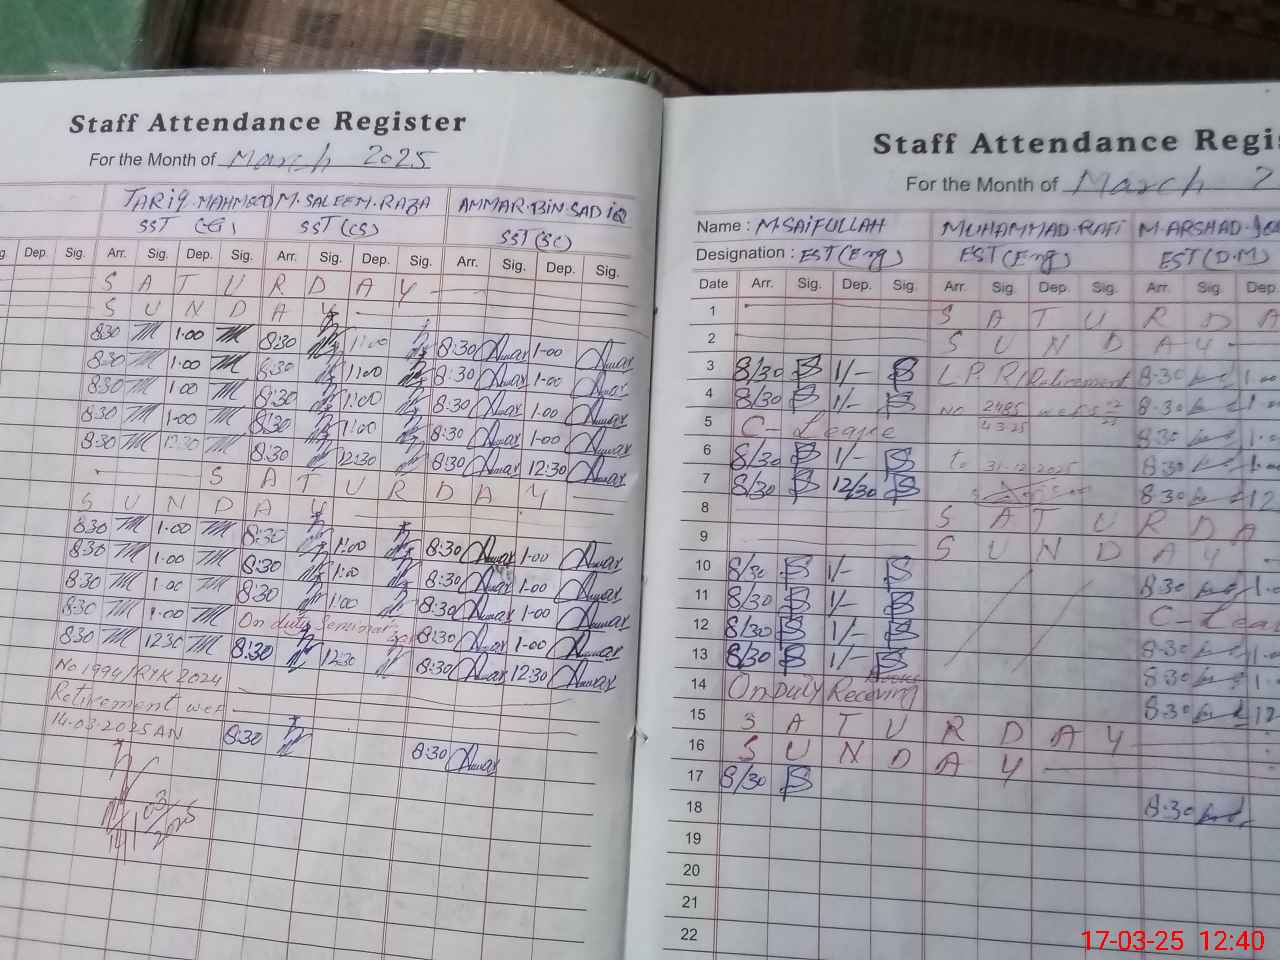 Staff Attendance Register
For the Month of March 2025
TARIQ.MAHMOOD M.SALEEM.RAZA AMMAR.BIN.SADIQ
SST (G) SST (CS) SST (SC)
Dep. Sig. Arr. Sig. Dep. Sig. Arr. Sig. Dep. Sig. Arr. Sig. Dep. Sig.
S A T U R D A Y
S U N D A Y
8:30 1.00 8:30 1:00 8:30 1-00
8:30 1.00 8:30 1:00 8:30 1-00
8:30 1.00 8:30 1:00 8:30 1-00
8:30 1.00 8:30 1:00 8:30 1-00
8:30 12:30 8:30 12:30 8:30 12:30
S A T U R D A Y
S U N D A Y
8:30 1.00 8:30 1:00 8:30 1-00
8:30 1.00 8:30 1:00 8:30 1-00
8:30 1.00 8:30 1:00 8:30 1-00
8:30 1.00 On duty 8:30 1-00
8:30 1230 8:30 12:30 8:30 12:30
No 1994/RYK 2024
Retirement wef
14-03-2025 AN
8:30 8:30
Staff Attendance Regi
For the Month of March 2
Name : M.SAIFULLAH MUHAMMAD.RAFI M.ARSHAD
Designation : EST (Eng) EST (Eng) EST (D.M)
Date Arr. Sig. Dep. Sig. Arr. Sig. Dep. Sig. Arr. Sig. Dep.
1 S A T U R D A
2 S U N D A Y
3 8/30 1/- L.P.R/Retirement 8-30 1.00
4 8/30 1/- No 2485 8-30
5 C-Leave 8:30
6 8/30 1/- to 31-12-2025 8:30
7 8/30 12/30 8:30 12
8 S A T U R D A
9 S U N D A Y
10 8/30 1/- 8:30
11 8/30 1/- C-Lea
12 8/30 1/- 8:30
13 8/30 1/- 8:30
14 On Duty Receving Books 8:30 12
15 S A T U R D A Y
16 S U N D A Y
17 8/30 8:30
18
19
20
21
22
17-03-25 12:40